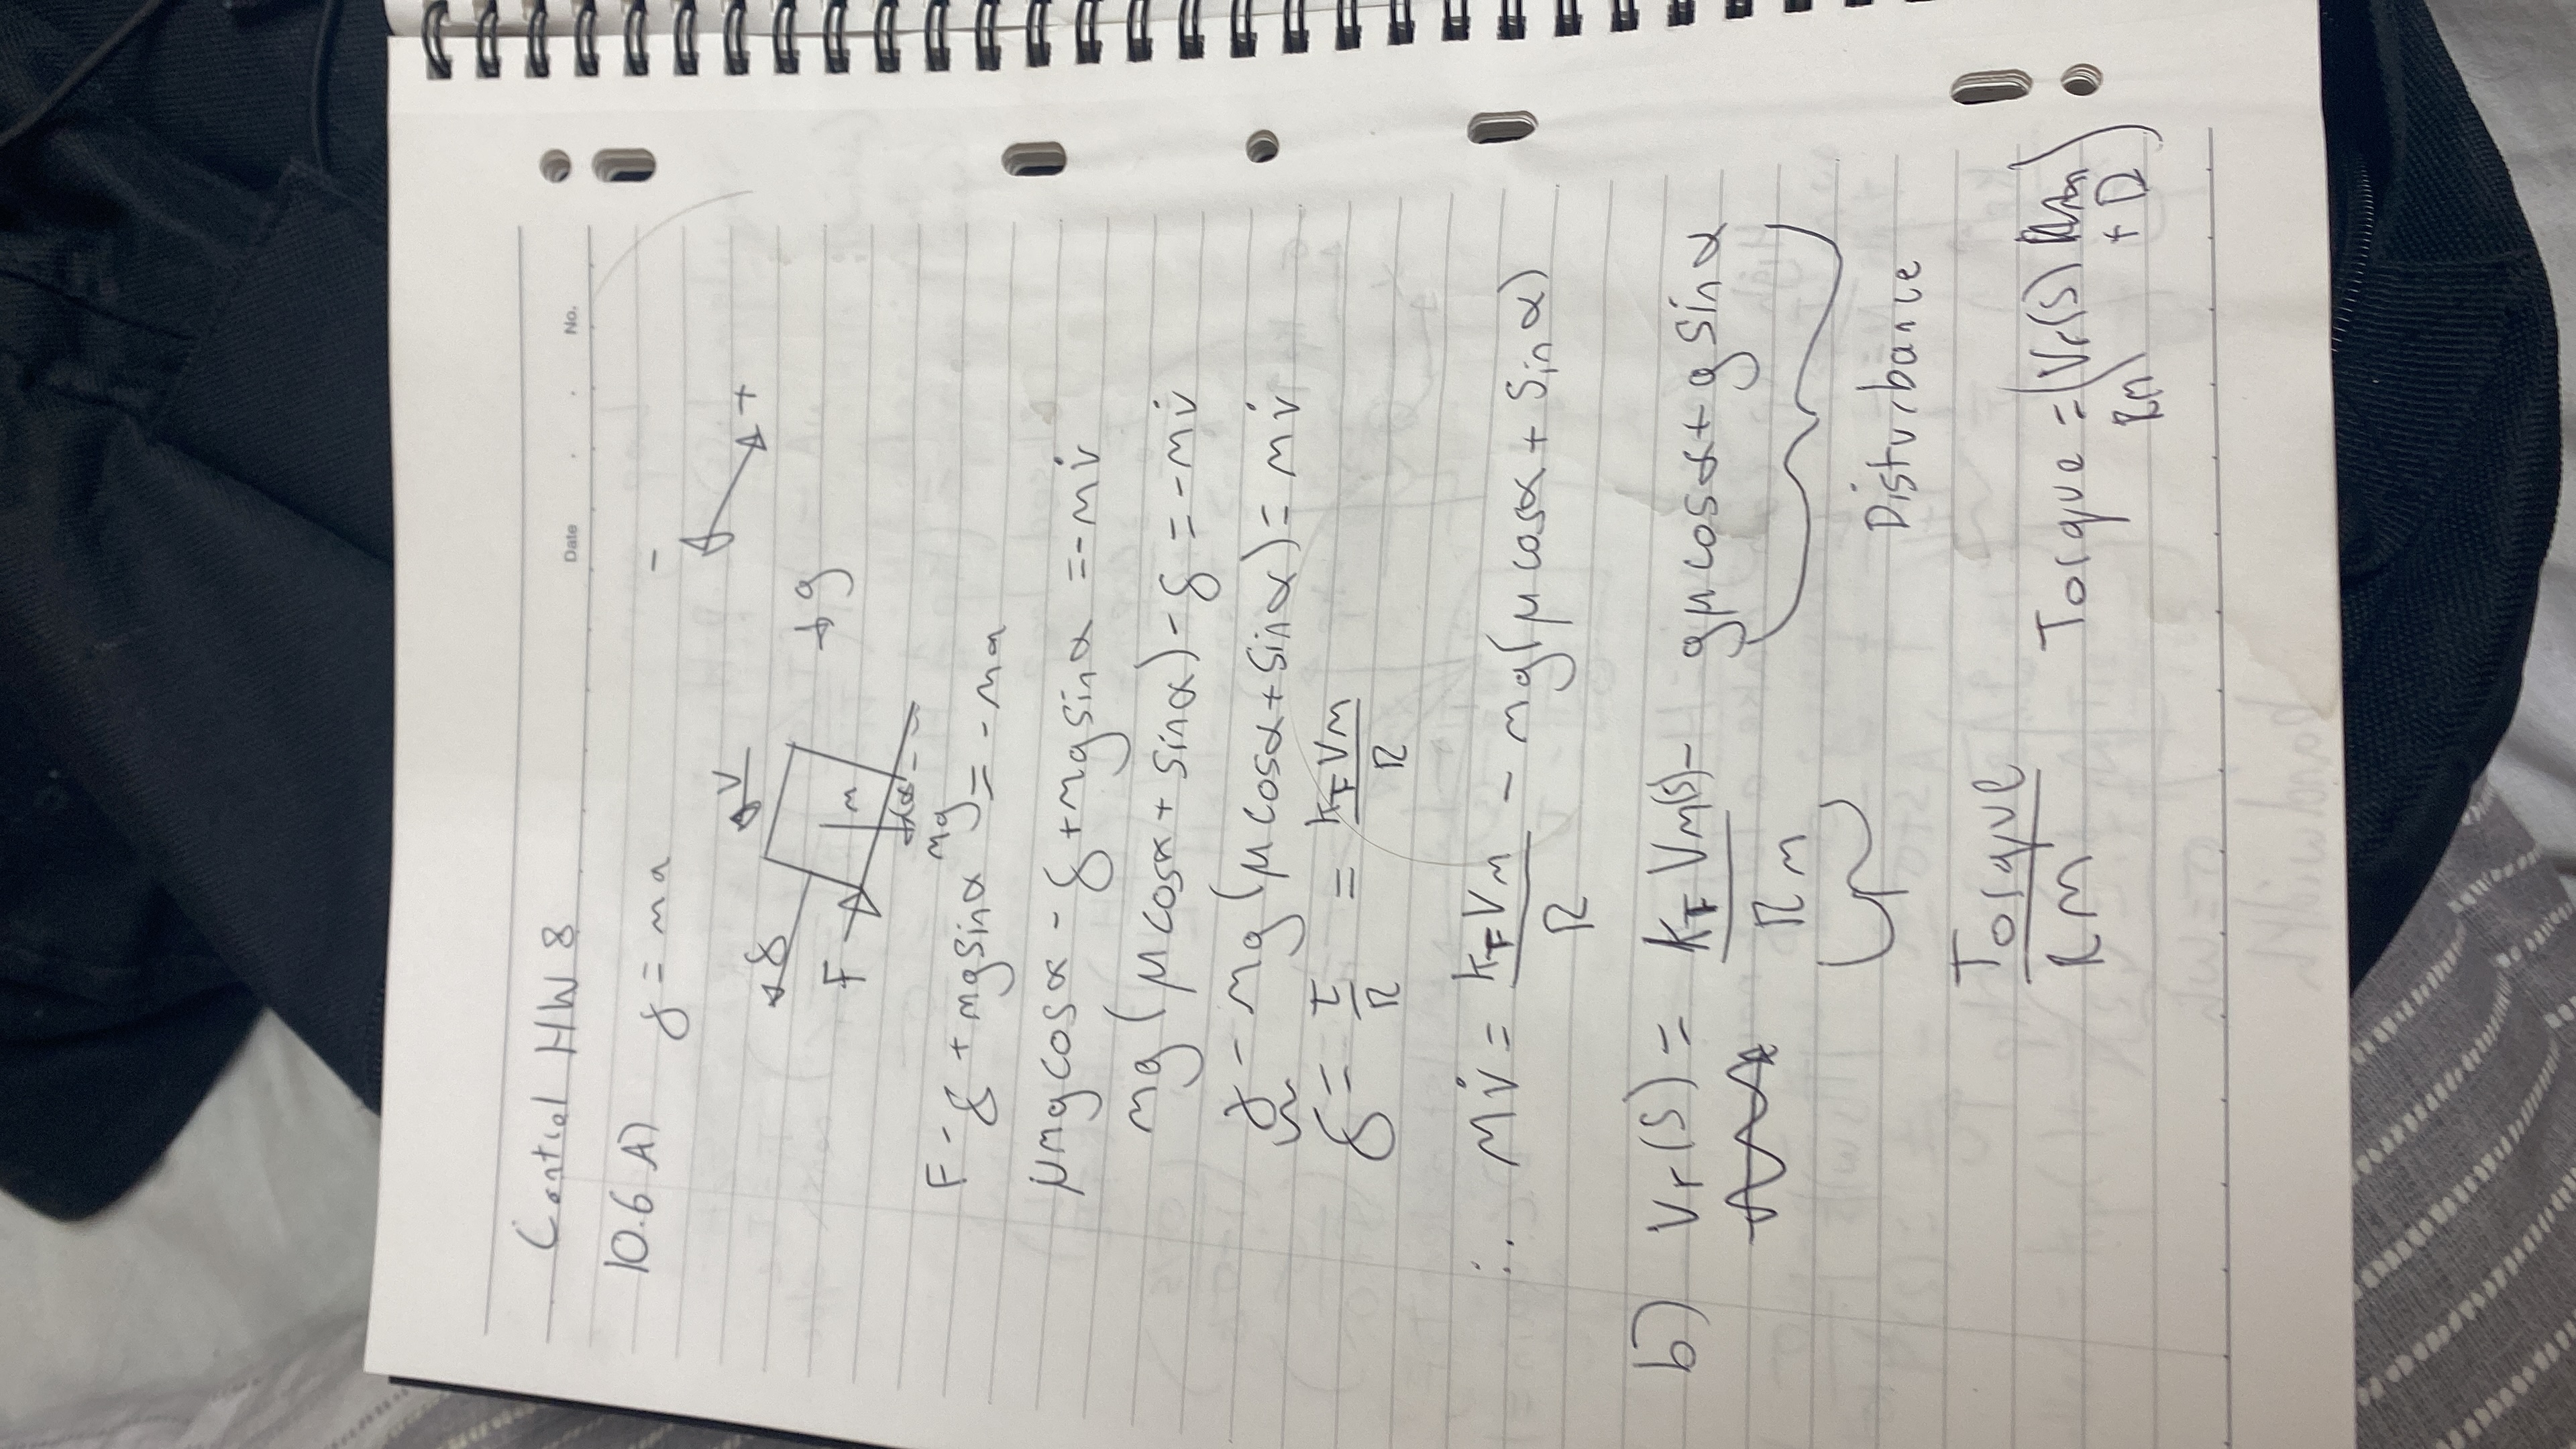 Control HW 8
Date . . No.
10.6 A) γ = ma
-
V
γ
+
g
F
m
α
mg
F - γ + mg sin α = -ma
μmg cos α - γ + mg sin α = -mv̇
mg (μ cos α + sin α) - γ = -mv̇
γ - mg (μ cos α + sin α) = mv̇
γ = τ/R = K_T V_M/R
∴ Mv̇ = K_T V_M/R - mg(μ cos α + sin α)
b) Vr(s) = K_T V_M(s)/RM - gμ cos α + g sin α
Disturbance
Torque/RM
Torque = RM (Vr(s) + D)